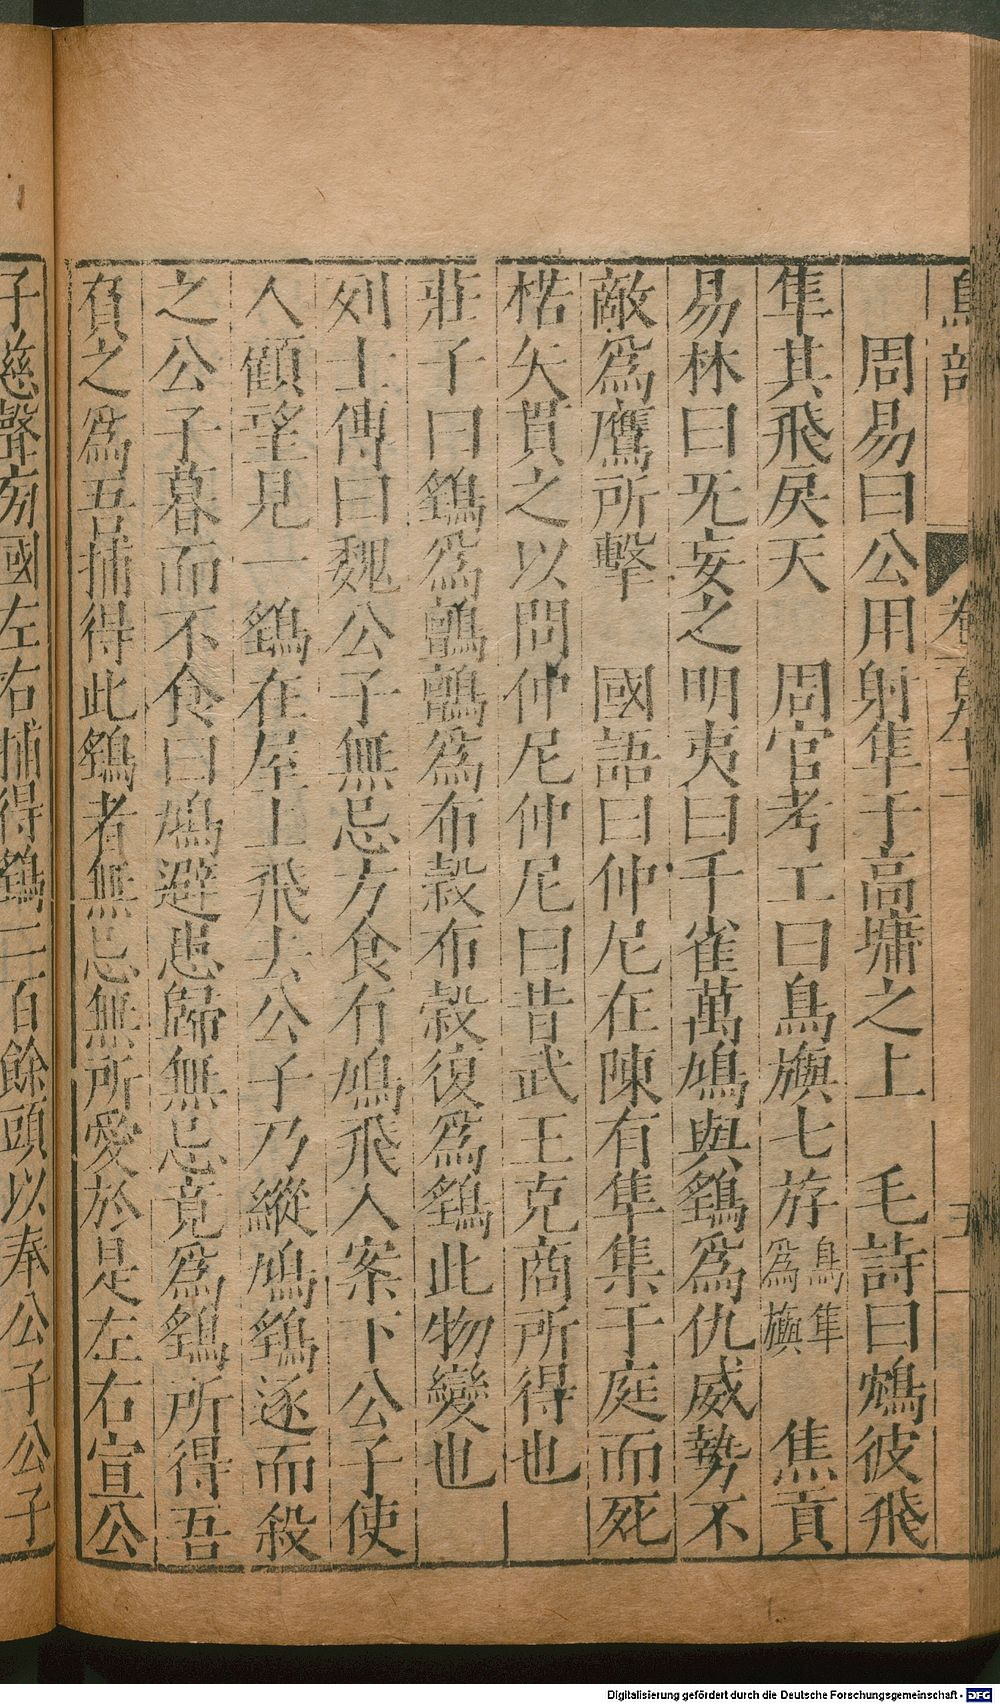 鳥部
周易曰公用射隼于高墉之上　毛詩曰鴥彼飛
隼其飛戾天　周官考工曰鳥旟七斿鳥隼為旟　焦貢
易林曰旡妄之明夷曰千雀萬鳩與鷂爲仇威勢不
敵爲鷹所擊　國語曰仲尼在陳有隼集于庭而死
楛矢貫之以問仲尼仲尼曰昔武王克商所得也
莊子曰鷂爲鸇鸇爲布榖布榖復爲鷂此物變也
列士傳曰魏公子無忌方食有鳩飛入案下公子使
人顧望見一鷂在屋上飛去公子乃縱鳩鷂逐而殺
之公子暮而不食曰鳩避患歸無忌竟爲鷂所得吾
負之爲吾捕得此鷂者無忌無所愛於是左右宣公
子慈聲旁國左右捕得鷂二百餘頭以奉公子公子
Digitalisierung gefördert durch die Deutsche Forschungsgemeinschaft - DFG